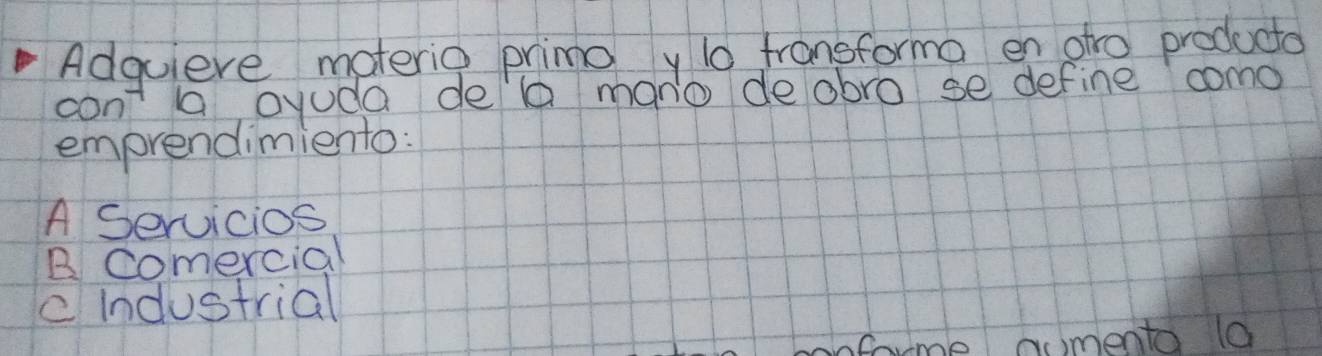 Adquiere materia prima y la transforma en otro producto
con la ayuda de la mano de obra se define como
emprendimiento:
A Servicios
B Comercial
C Industrial
conforme aumenta la